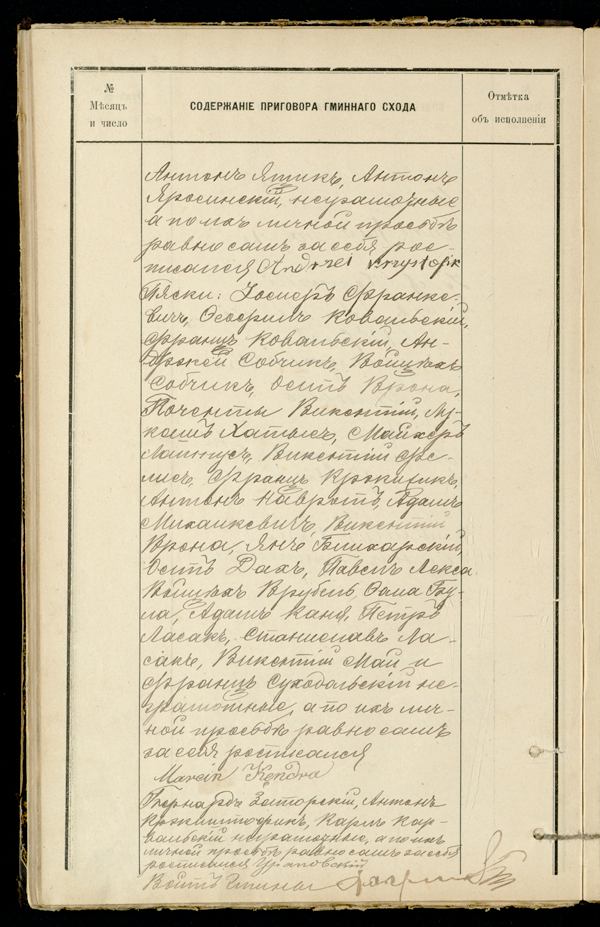 №
Мѣсяцъ
и число
СОДЕРЖАНІЕ ПРИГОВОРА ГМИННАГО СХОДА
Отмѣтка
объ исполненіи
Антонъ Ятикъ, Антонъ
Яросинскій, неграмотные
а по ихъ личной просьбѣ
равно самъ за себя рос-
писался Andrzei Krzystofik
Пяски: Іосифъ Франке-
вичъ, Ковальскій,
Францъ Ковальскій, Ан-
држей Собчикъ, Войцѣхъ
Собчикъ, Осипъ Врона,
Поченты Викентій, Лу-
кашъ Хатысъ, Майхеръ
Викентій Фе-
лисъ, Францъ Кржитикъ,
Антонъ Навротъ, Адамъ
Михалкевичъ, Викентій
Врона, Янъ Бихарскій,
Осипъ Дахъ, Павелъ Лекса
Войцѣхъ Врубель, Ѳома Бу-
ла, Адамъ Каня, Петръ
Ласакъ, Станиславъ Ла-
сакъ, Викентій Май и
Францъ Суходольскій не-
грамотные, а по ихъ лич-
ной просьбѣ равно самъ
за себя росписался
Marcin Kendra
Бернардъ Заторскій, Антонъ
Кржиштофикъ, Карлъ Кор-
вальскій неграмотные, а по ихъ
личной просьбѣ равно самъ за себя
росписался
Войтъ Гмины